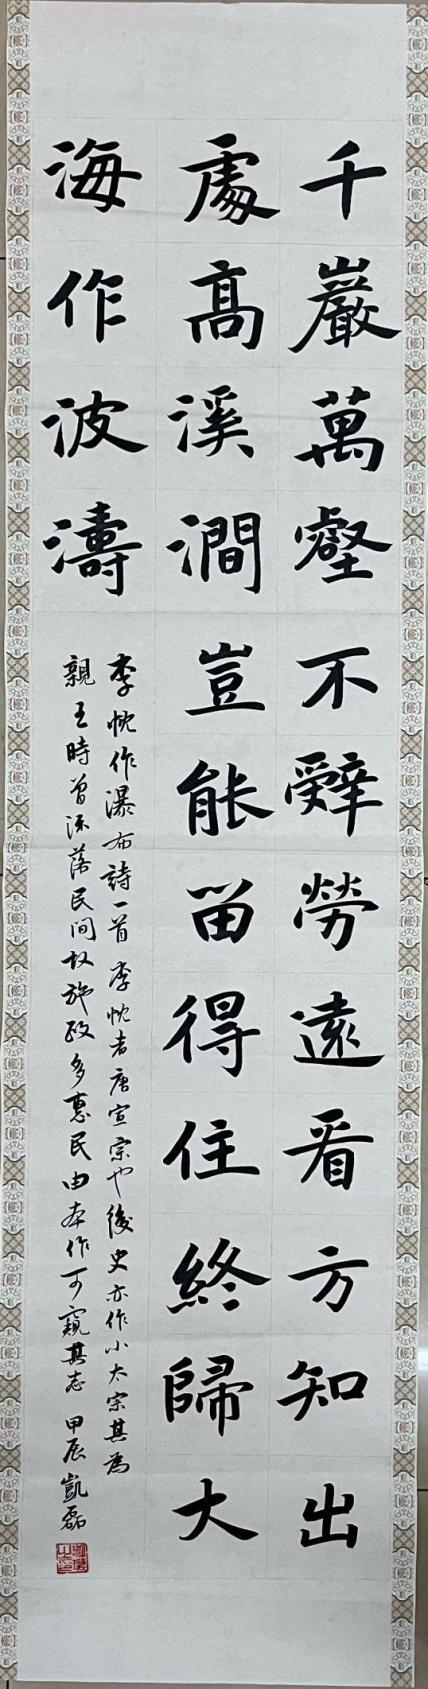 千巖萬壑不辭勞遠看方知出
處高溪澗豈能留得住終歸大
海作波濤
李忱作瀑布詩一首李忱者唐宣宗也後史亦作小太宗其為
親王時曾流落民間故施政多惠民由本作可窺其志甲辰凱磊